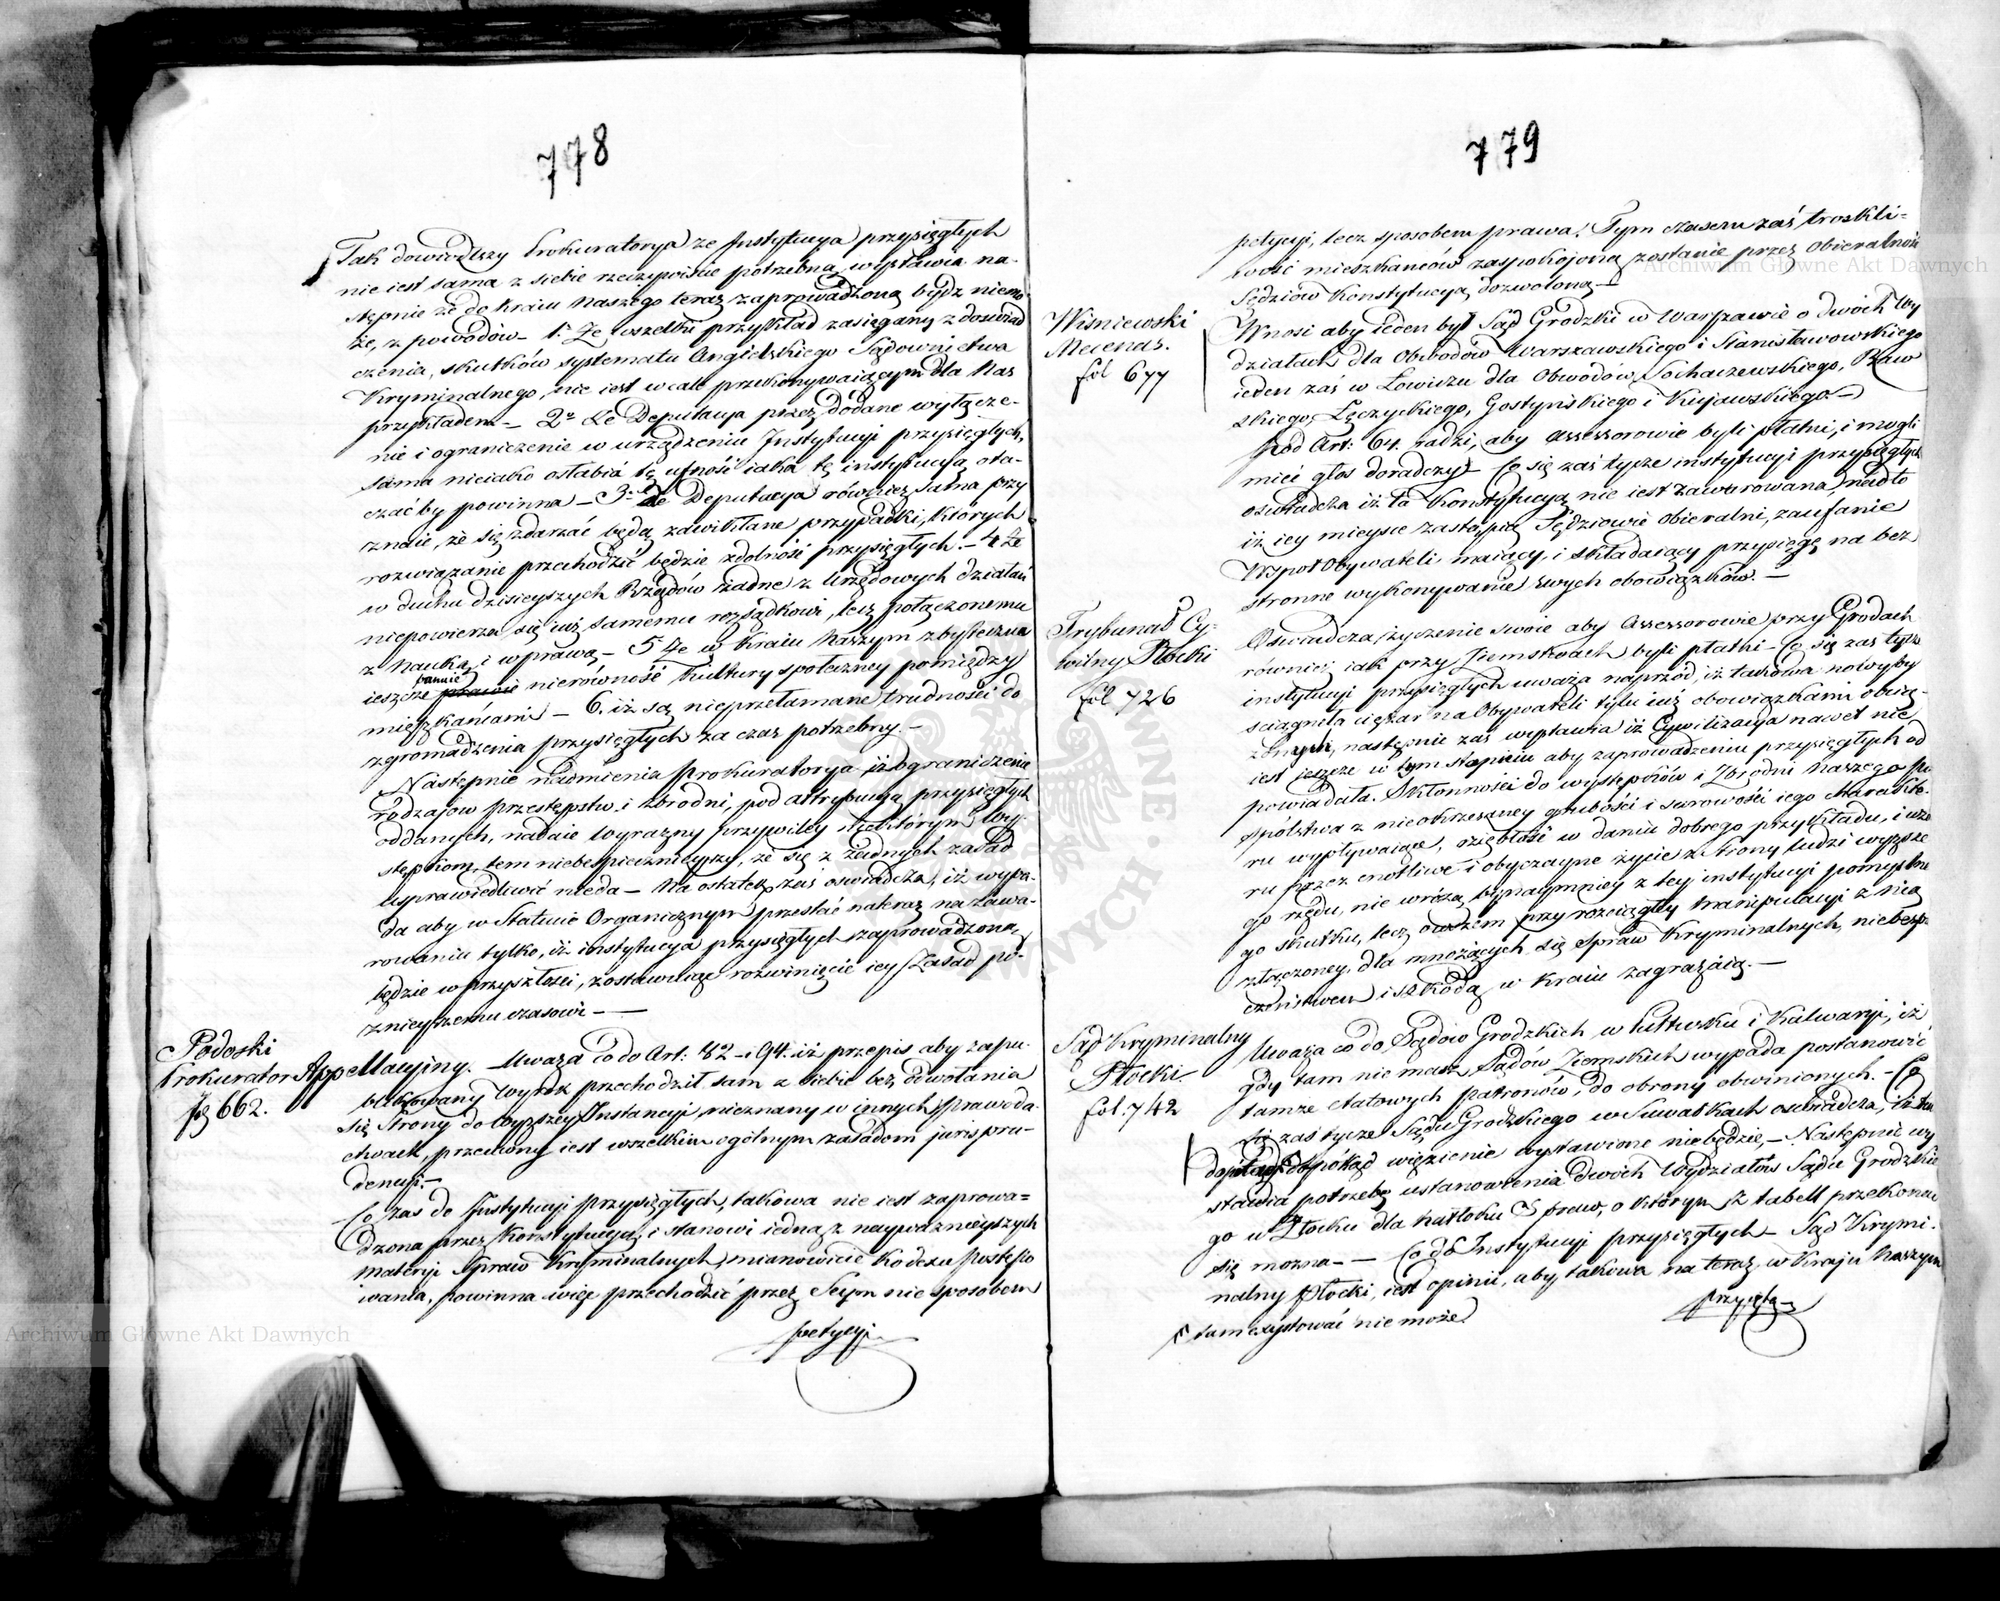 778
Tak dowiodłszy Prokuratorya że Instytucya przysięgłych
nie iest sama z siebie rzeczywiście potrzebną, wystawia na-
stępnie że do Kraiu Naszego teraz zaprowadzoną bydź niemo
że, z powodów – 1. Że wszelki przykład zasięgany z doświad
czenia, skutków systematu Angielskiego Sądownictwa
Kryminalnego, nie iest wcale przekonywaiącym dla Nas
przykładem – 2º Że Deputacya przez dodane wyłącze-
nie i ograniczenie w urządzeniu Instytucyi przysięgłych,
sama nieiako osłabia tę ufność iaka tę instytucyą ota-
czać by powinna – 3. Że Deputacya również sama przy
znaie, że się zdarzać będą zawikłane przypadki, których
rozwiązanie przechodzić będzie zdolność przysięgłych. – 4 Że
w duchu dzisieyszych Rządów żadne z Urzędowych działań
niepowierza się iuż samemu rozsądkowi, lecz połączonemu
z Nauką i wprawą – 5 Że w Kraiu Naszym zbyteczna
ieszcze panuie nierówność Kultury społeczney pomiędzy
mieszkańcami – 6. iż są nieprzełamane trudności do
zgromadzenia przysięgłych za czas potrzebny. –
Następnie nadmienia Prokuratorya iż ograniczenie
rodzaiow przestępstw i zbrodni, pod attrybucyą przysięgłych
oddanych, nadaie wyrazny przywiley niektórym Wy-
stępkom, tem niebespiecznieyszy, że się z żadnych zasad
usprawiedliwić nieda – Na ostatek zaś oswiadcza, iż wypa-
da aby w Statucie Organicznym przestać nateraz na zawa-
rowaniu tylko, iż instytucya przysięgłych zaprowadzona
będzie w przyszłości, zostawuiąc rozwinięcie iey Zasad pó-
znieyszemu czasowi – —
Podoski
Prokurator Appellacyiny. – Uważa Co do Art: 82 – i 94. iż przepis aby zapu-
fog 662.
blikowany Wyrok przechodził sam z siebie bez odwołania
się Strony do wyższey Instancyi nieznany w innych prawoda
chwach, przeciwny iest wszelkim ogólnym zasadom jurispru-
dencyi. –
Co zas do Instytucyi przysięgłych, takowa nie iest zaprowa=
dzona przez Konstytucyą, i stanowi iedną z naywaznieyszych
Materyi Spraw Kryminalnych, mianowicie Kodexu Postępo
wania, powinna więc przechodzić przez Seym nie sposobem
petycyi
779
petycyi, lecz sposobem prawa. Tym czasem zaś troskli=
wość mieszkancow zaspokojoną zostanie przez obieralność
Sędziow Konstytucyą dozwoloną –
Wiśniewski
Mecenas.
fol 677
Wnosi aby ieden był Sąd Grodzki w Warszawie o dwóch Wy
działach dla Obwodów Warszawskiego i Stanisławowskiego
ieden zaś w Łowiczu dla Obwodów Sochaczewskiego, Raw
skiego, Łęczyckiego, Gostyńskiego i Kujawskiego. –
Pod Art: 64. radzi, aby assessorowie byli płatni, i mogli
mieć głos doradczy. – Co się zaś tycze instytucyi przysięgłych
oswiadcza iż ta Konstytucyą nie iest zawarowana, nadto
iż iey mieysce zastąpią Sędziowie obieralni, zaufanie
Współ Obywateli maiący, i składaiący przysięgę na bez
stronne wykonywanie swych obowiązków. –
Trybunał Cy-
wilny Płocki
fol 726
Oswiadcza życzenie swoie aby Assessorowie przy Grodach
równie iak przy Ziemstwach byli płatni – Co się zas tycze
instytucyi przysięgłych uważa naprzód, iż takowa nowy by
sciągnęła ciężar na Obywateli tylu iuż obowiązkami obcią-
żonych, następnie zas wystawia iż Cywilizacya nawet nie
iest jeszcze w tym stopniu aby zaprowadzeniu przysięgłych od
powiadała. Skłonności do występków i Zbrodni Naszego po
spólstwa z nieokrzesaney grubości i surowości iego charakte-
ru wypływaiące, oziębłość w daniu dobrego przykładu, i wzo
ru przez cnotliwe i obyczayne życie z strony ludzi wyższe
go rzędu, nie wróżą bynaymniey z tey instytucyi pomyslne
go skutku, lecz owszem przy rozciągłey manipulacyi z nią
złączoney, dla mnożących się Spraw Kryminalnych, niebespe
czeństwem i szkodą w kraiu zagrażaią. –
Sąd Kryminalny
Płocki.
fol. 742
Uważa co do Sądów Grodzkich w Pułtusku i Kalwaryi, iż
gdy tam nie masz Sądów Ziemskich wypada postanowić
tamże etatowych patronów, do obrony obwinionych. – Co
się zas tycze Sądu Grodzkiego w Suwałkach oswiadcza, iż ten
dopokąd więzienie wystawione niebędzie, – Następnie wy
stawia potrzebę ustanowienia dwóch Wydziałów Sądu Grodzkie
go w Płocku dla natłoku Spraw, o którym z tabell przekonać
się można – — Co do Instytucyi przysięgłych – Sąd Krymi-
nalny Płocki, iest opinii, aby takowa na teraz w Kraju Naszym
przyiętą
tam exystować nie może